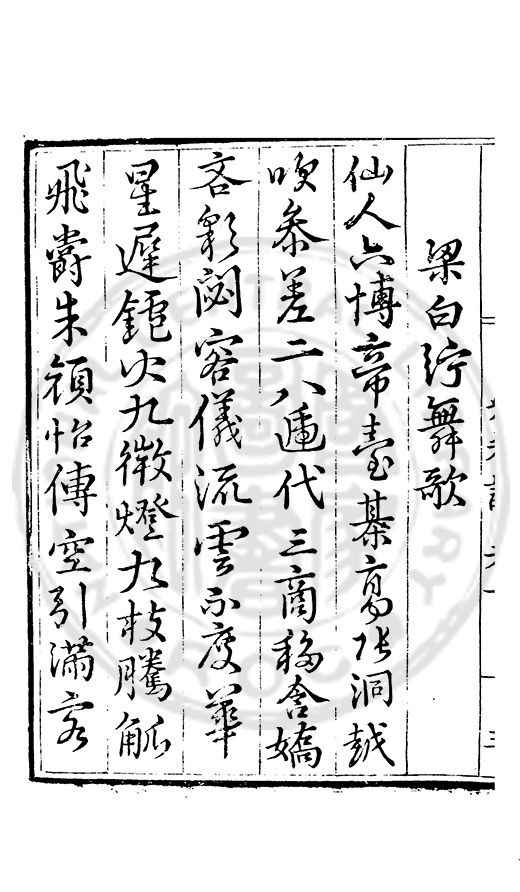 梁白紵舞歌
仙人六博帝臺棊高張洞越
吹參差二八遞代三商移含嬌
吝彩閟容儀流雲不度華
星遲鑪火九微燈九枝騰觚
飛爵朱顏怡傳空引滿客